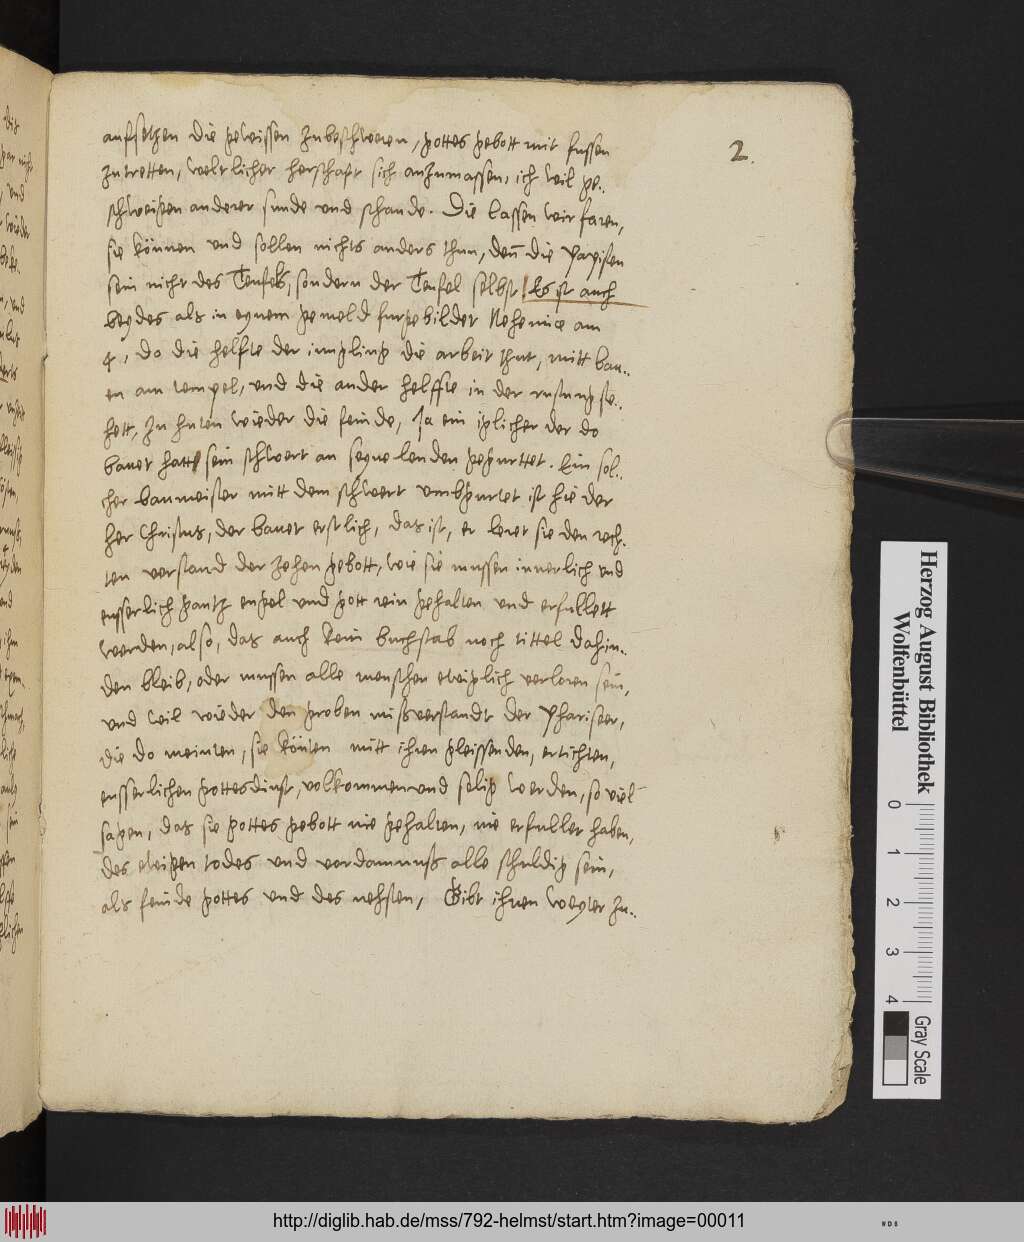 2.
aufsetzen die gewissen zubeschweren, gottes gebott mit fussen
zutretten, weltlicher herschafft sich anzumassen, ich wil ge..
schweigen anderer sunde und schande. Die lassen wir faren,
sie können und sollen nichts anders thun, den̄ die Papisten
sein nicht des Teufels, sondern der Teufel selbst! Es ist auch
beydes als in eynem gemeld furgebildet Nehemiae am
4, do die helfte der jungling die arbeit thut, mitt bau..
en am tempel, und die ander helffte in der rustung ste..
hett, zu huten wieder die feinde, Ja ein iglicher der do
bauet hatt sein schwert an seyne lenden gegurttet. Ein sol..
cher baumeister mitt dem schwert umbgurtet ist hie der
her Christus, der bauet erstlich, das ist, er leret sie den rech.
ten verstand der zehen gebott, wie sie mussen innerlich und
eusserlich gantz engel und gott rein gehalten und erfullett
werden, also, das auch kein buchstab noch tittel dahin..
den bleib, oder mussen alle menschen ewiglich verloren sein,
und weil wieder den groben missverstandt der Phariseer,
die do meinten, sie könten mitt ihren gleissenden, ertichten,
eusserlichen gottesdinst, volkommen und selig werden, so viel
sagen, das sie gottes gebott nie gehalten, nie erfullet haben,
des ewigen todes und verdamnuss alle schuldig sein,
als feinde gottes und des nehsten, Gibt ihnen weyter zu..
Herzog August Bibliothek
Wolfenbüttel
0 1 2 3 4
Gray Scale
http://diglib.hab.de/mss/792-helmst/start.htm?image=00011